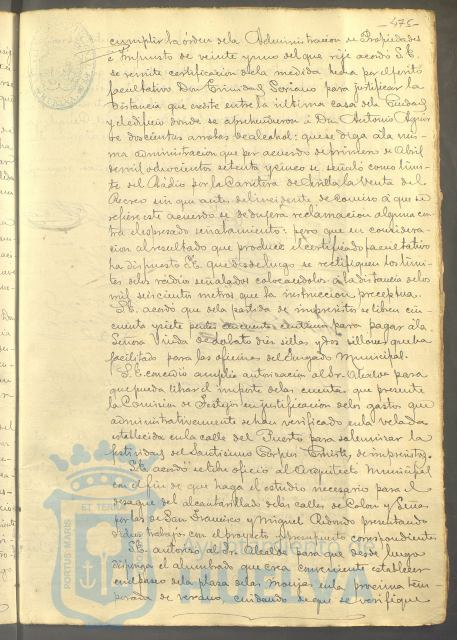 475
cumplir la orden de la Administracion de Propiedades
é Impuesto de veinte y uno del que rije acordó S.E.
se remite certificacion de la medida hecha por el perito
facultativo Don Trinidad Soriano para justificar la
distancia que existe entre la última casa de la Ciudad
y el edificio donde se aprehendieron á Don Antonio
doscientas arrobas de alcohol: que se diga á la mis-
ma administracion que por acuerdo de primero de Abril
de mil ochocientos setenta y cinco se señaló como lími-
te del Rádio por la Carretera de Sevilla la Venta del
Recreo sin que antes del incidente de comiso á que se
refiere este acuerdo se dedujera reclamacion alguna con-
tra el espresado señalamiento: pero que en considera-
cion al resultado que produce el certificado facultativo
ha dispuesto S.E. que desde luego se rectifiquen los lími-
tes de los rádios señalados colocandolos á la distancia de los
mil seiscientos metros que la instruccion preceptua.
S.E. acordó que de la partida de imprevistos se libren cin-
cuenta y siete pesetas cincuenta centimos para pagar á la
Señora Viuda de dolato diez sillas y dos sillones que ha
facilitado para las oficinas del Juzgado Municipal.
S.E. concedió amplia autorizacion al Sr. Alcalde para
que pueda librar el importe de las cuentas que presente
la Comision de Festejos en justificacion de los gastos que
administrativamente se han verificado en la velada
establecida en la calle del Puerto para solemnizar la
festividad del Santisimo Corpus Christi, de imprevistos.
S.E. acordó se libre oficio al Arquitecto Municipal
con el fin de que haga el estudio necesario para el
desagüe del alcantarillado de las calles de Colon y
de San Francisco y Miguel Redondo presentando
dichos trabajos con el proyecto y presupuesto correspondiente.
S.E. autorizó al Sr. Alcalde para que desde luego
disponga el alumbrado que crea conveniente establecer
en el paseo de la plaza de las Monjas en la procsima tem-
porada de verano, cuidando de que se verifique
PORTUS MARIS
ET TERRAE
Ayuntamiento
HUELVA